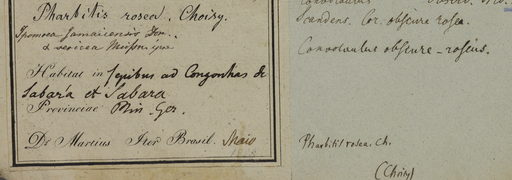 Pharbitis rosea. Choisy.
Ipomoea Jamaicensis Don.
& sericea Meissn. ipse
Habitat in sepibus ad Congonhas de
Sabará et Sabara
Provinciae Min. Ger.
Dr Martius Iter Brasil. Maio
Convolvulus
Scandens. Cor. obscure rosea.
Convolvulus obscure-roseus.
Pharbitis rosea. Ch.
(Choisy)